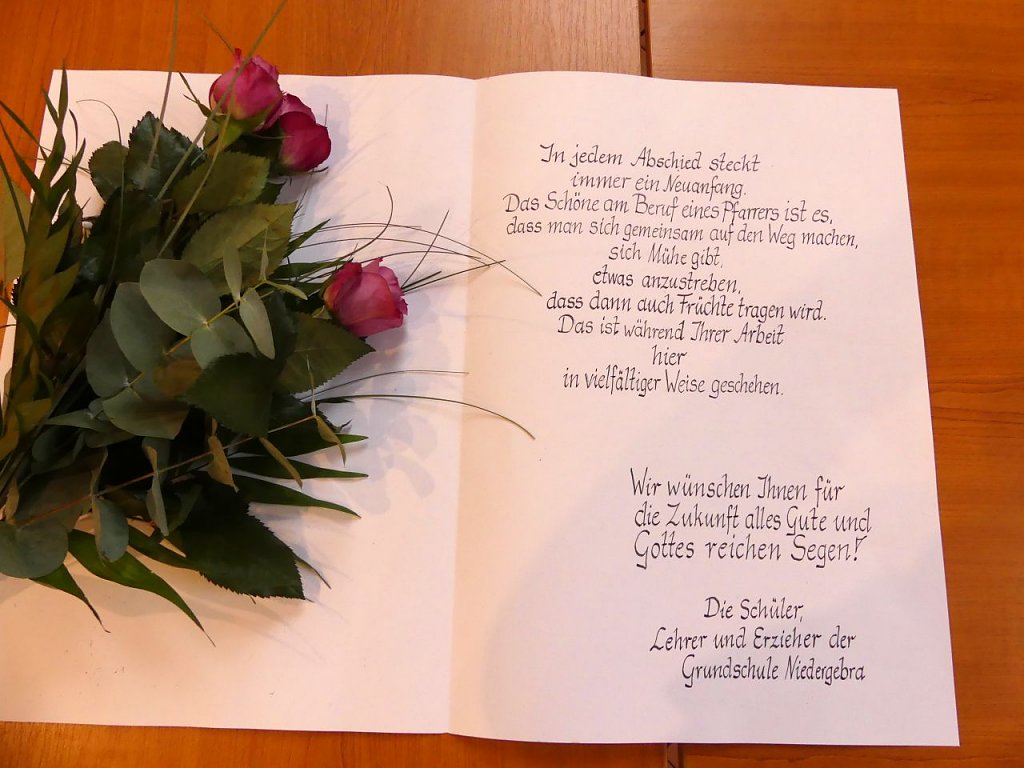 In jedem Abschied steckt
immer ein Neuanfang.
Das Schöne am Beruf eines Pfarrers ist es,
dass man sich gemeinsam auf den Weg machen,
sich Mühe gibt,
etwas anzustreben,
dass dann auch Früchte tragen wird.
Das ist während Ihrer Arbeit
hier
in vielfältiger Weise geschehen.
Wir wünschen Ihnen für
die Zukunft alles Gute und
Gottes reichen Segen!
Die Schüler,
Lehrer und Erzieher der
Grundschule Niedergebra